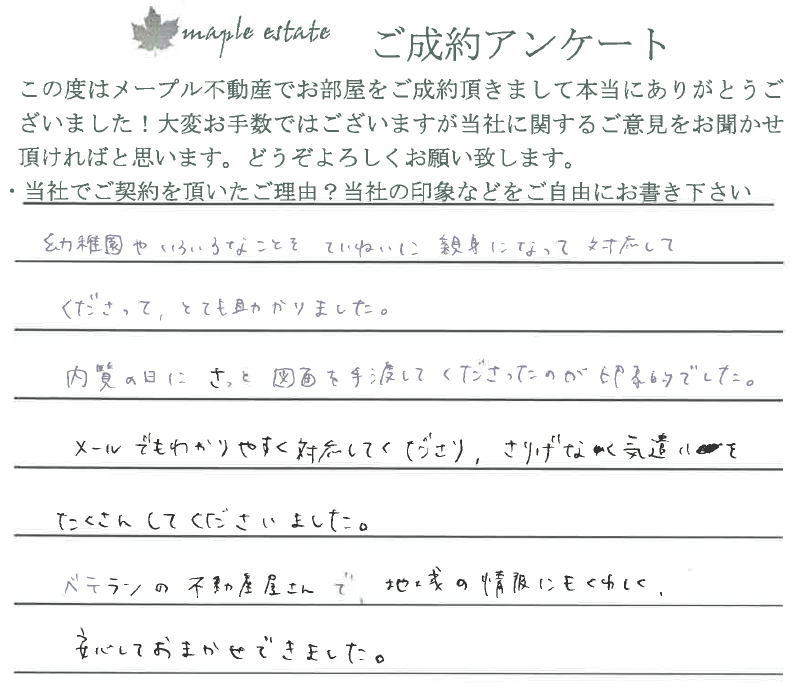 maple estate ご成約アンケート
この度はメープル不動産でお部屋をご成約頂きまして本当にありがとうご
ざいました！大変お手数ではございますが当社に関するご意見をお聞かせ
頂ければと思います。どうぞよろしくお願い致します。
・当社でご契約を頂いたご理由？当社の印象などをご自由にお書き下さい
幼稚園やいろいろなことを ていねいに 親身になって 対応して
くださって、とても助かりました。
内覧の日に さっと 図面を手渡してくださったのが 印象的でした。
メールでもわかりやすく対応してくださり、さりげなく気遣いを
たくさんしてくださいました。
ベテランの不動産屋さんで、地域の情報にもくわしく、
安心しておまかせできました。